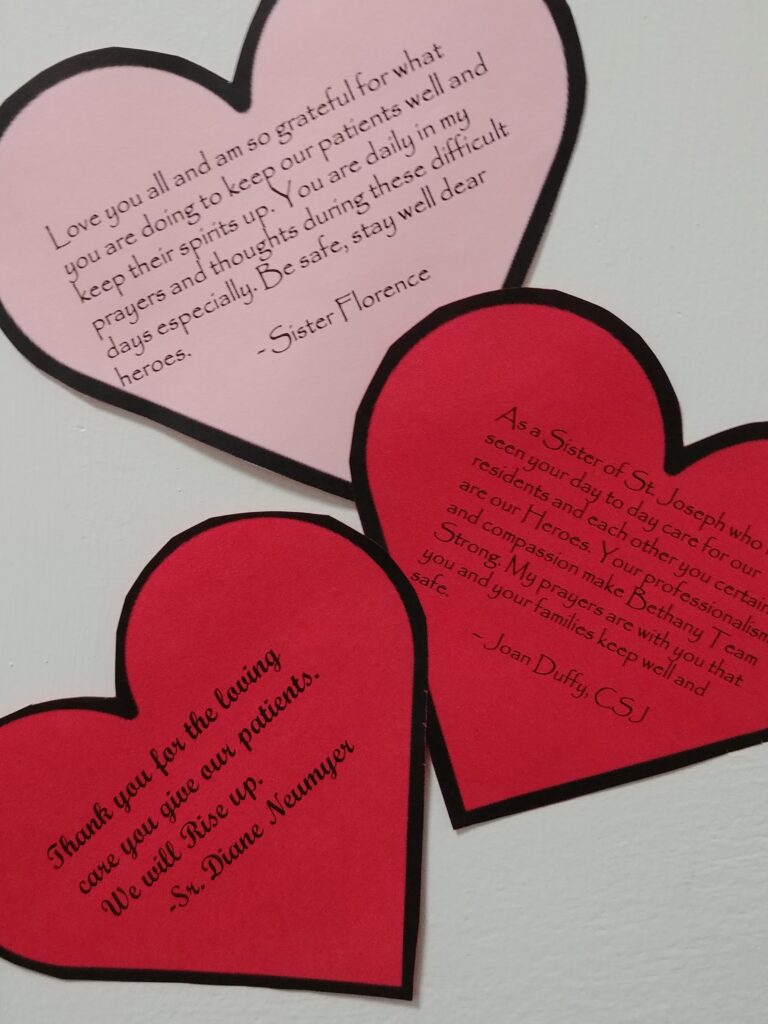 Love you all and am so grateful for what
you are doing to keep our patients well and
keep their spirits up. You are daily in my
prayers and thoughts during these difficult
days especially. Be safe, stay well dear
heroes. - Sister Florence
As a Sister of St. Joseph who
seen your day to day care for our
residents and each other you
are our Heroes. Your professionalism
and compassion make Bethany Team
Strong. My prayers are with you that
you and your families keep well and
safe.
- Joan Duffy, CSJ
Thank you for the loving
care you give our patients.
We will Rise up.
-Sr. Diane Neumyer